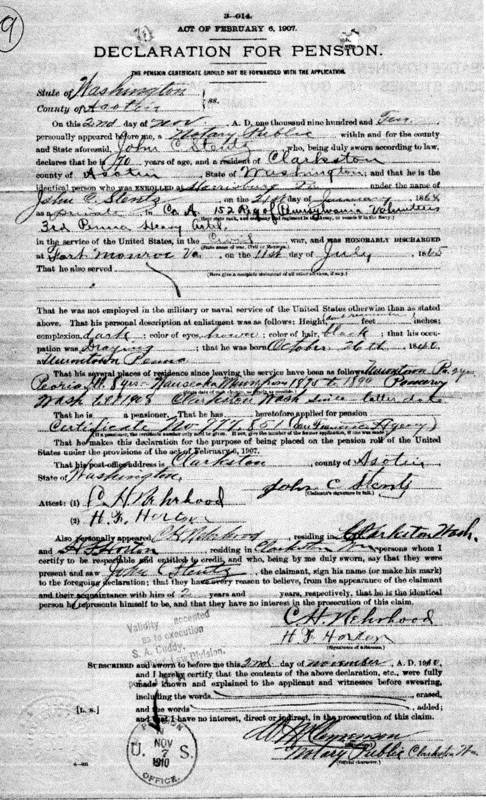 9
3—014.
ACT OF FEBRUARY 6, 1907.
DECLARATION FOR PENSION.
THE PENSION CERTIFICATE SHOULD NOT BE FORWARDED WITH THE APPLICATION.
State of Washington
County of Asotin } ss.
On this 2nd day of Nov., A. D. one thousand nine hundred and Ten
personally appeared before me, a Notary Public within and for the county
and State aforesaid, John C Stentz who, being duly sworn according to law,
declares that he is 70 years of age, and a resident of Clarkston
county of Asotin, State of Washington; and that he is the
identical person who was ENROLLED at Harrisburg Pa under the name of
John C. Stentz, on the 21st day of January, 1864
as a private, in Co. A. 152 Reg of Pennsylvania Volunteers
3rd Penna Heavy Artil.
in the service of the United States, in the Civil war, and was HONORABLY DISCHARGED
at Fort Monroe Va., on the 11st day of July, 1865
That he also served
(Here give a complete statement of all other services, if any.)
That he was not employed in the military or naval service of the United States otherwise than as stated
above. That his personal description at enlistment was as follows: Height, feet inches;
complexion, dark; color of eyes, ; color of hair, black; that his occu-
pation was ; that he was born October 26th, 1840,
at Uniontown Penna
That his several places of residence since leaving the service have been as follows: Uniontown Pa
Peoria Ill. 8 yrs — Waseka Minn from 1875 to 1890 Pomeroy
Wash to 1908 Clarkston Wash since latter date
That he is a pensioner. That he has heretofore applied for pension
Certificate No (San Francisco Agency)
That he makes this declaration for the purpose of being placed on the pension roll of the United
States under the provisions of the act of February 6, 1907.
That his post-office address is Clarkston, county of Asotin,
State of Washington.
John C Stentz
(Claimant's signature in full.)
Attest: (1) C. H. Nehrhood
(2) H. F. Horton
Also personally appeared C H Nehrhood, residing in Clarkston Wash.
and H F Horton, residing in Clarkston Wn persons whom I
certify to be respectable and entitled to credit, and who, being by me duly sworn, say that they were
present and saw John C Stentz, the claimant, sign his name (or make his mark)
to the foregoing declaration; that they have every reason to believe, from the appearance of the claimant
and their acquaintance with him of 2 years and years, respectively, that he is the identical
person he represents himself to be, and that they have no interest in the prosecution of this claim.
C H Nehrhood
H F Horton
(Signatures of witnesses.)
Validity accepted
as to execution
S. A. Cuddy,
Division.
SUBSCRIBED and sworn to before me this 2nd day of November, A. D. 1910,
and I hereby certify that the contents of the above declaration, etc., were fully
made known and explained to the applicant and witnesses before swearing,
including the words , erased,
and the words , added;
[L. S.] and that I have no interest, direct or indirect, in the prosecution of this claim.
Notary Public Clarkston Wn
(Official character.)
U. S. PENSION OFFICE.
NOV 7 1910